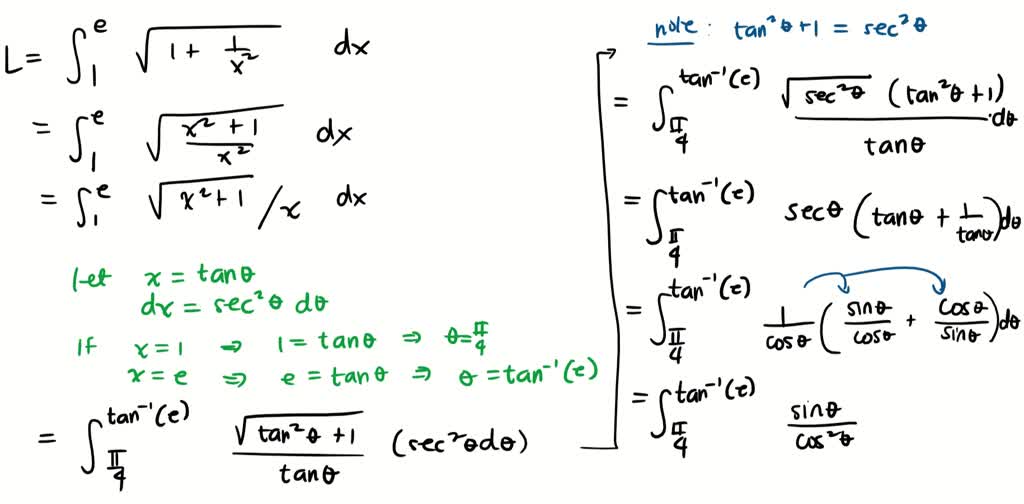 L = ∫₁ᵉ √(1 + 1/x²) dx
= ∫₁ᵉ √((x² + 1)/x²) dx
= ∫₁ᵉ √(x² + 1) / x dx
let x = tanθ
dx = sec²θ dθ
If x = 1 ⇒ 1 = tanθ ⇒ θ = π/4
x = e ⇒ e = tanθ ⇒ θ = tan⁻¹(e)
= ∫_{π/4}^{tan⁻¹(e)} √(tan²θ + 1) / tanθ (sec²θ dθ)
note : tan²θ + 1 = sec²θ
= ∫_{π/4}^{tan⁻¹(e)} √(sec²θ) (tan²θ + 1) / tanθ · dθ
= ∫_{π/4}^{tan⁻¹(e)} secθ (tanθ + 1/tanθ) dθ
= ∫_{π/4}^{tan⁻¹(e)} 1/cosθ (sinθ/cosθ + cosθ/sinθ) dθ
= ∫_{π/4}^{tan⁻¹(e)} sinθ/cos²θ